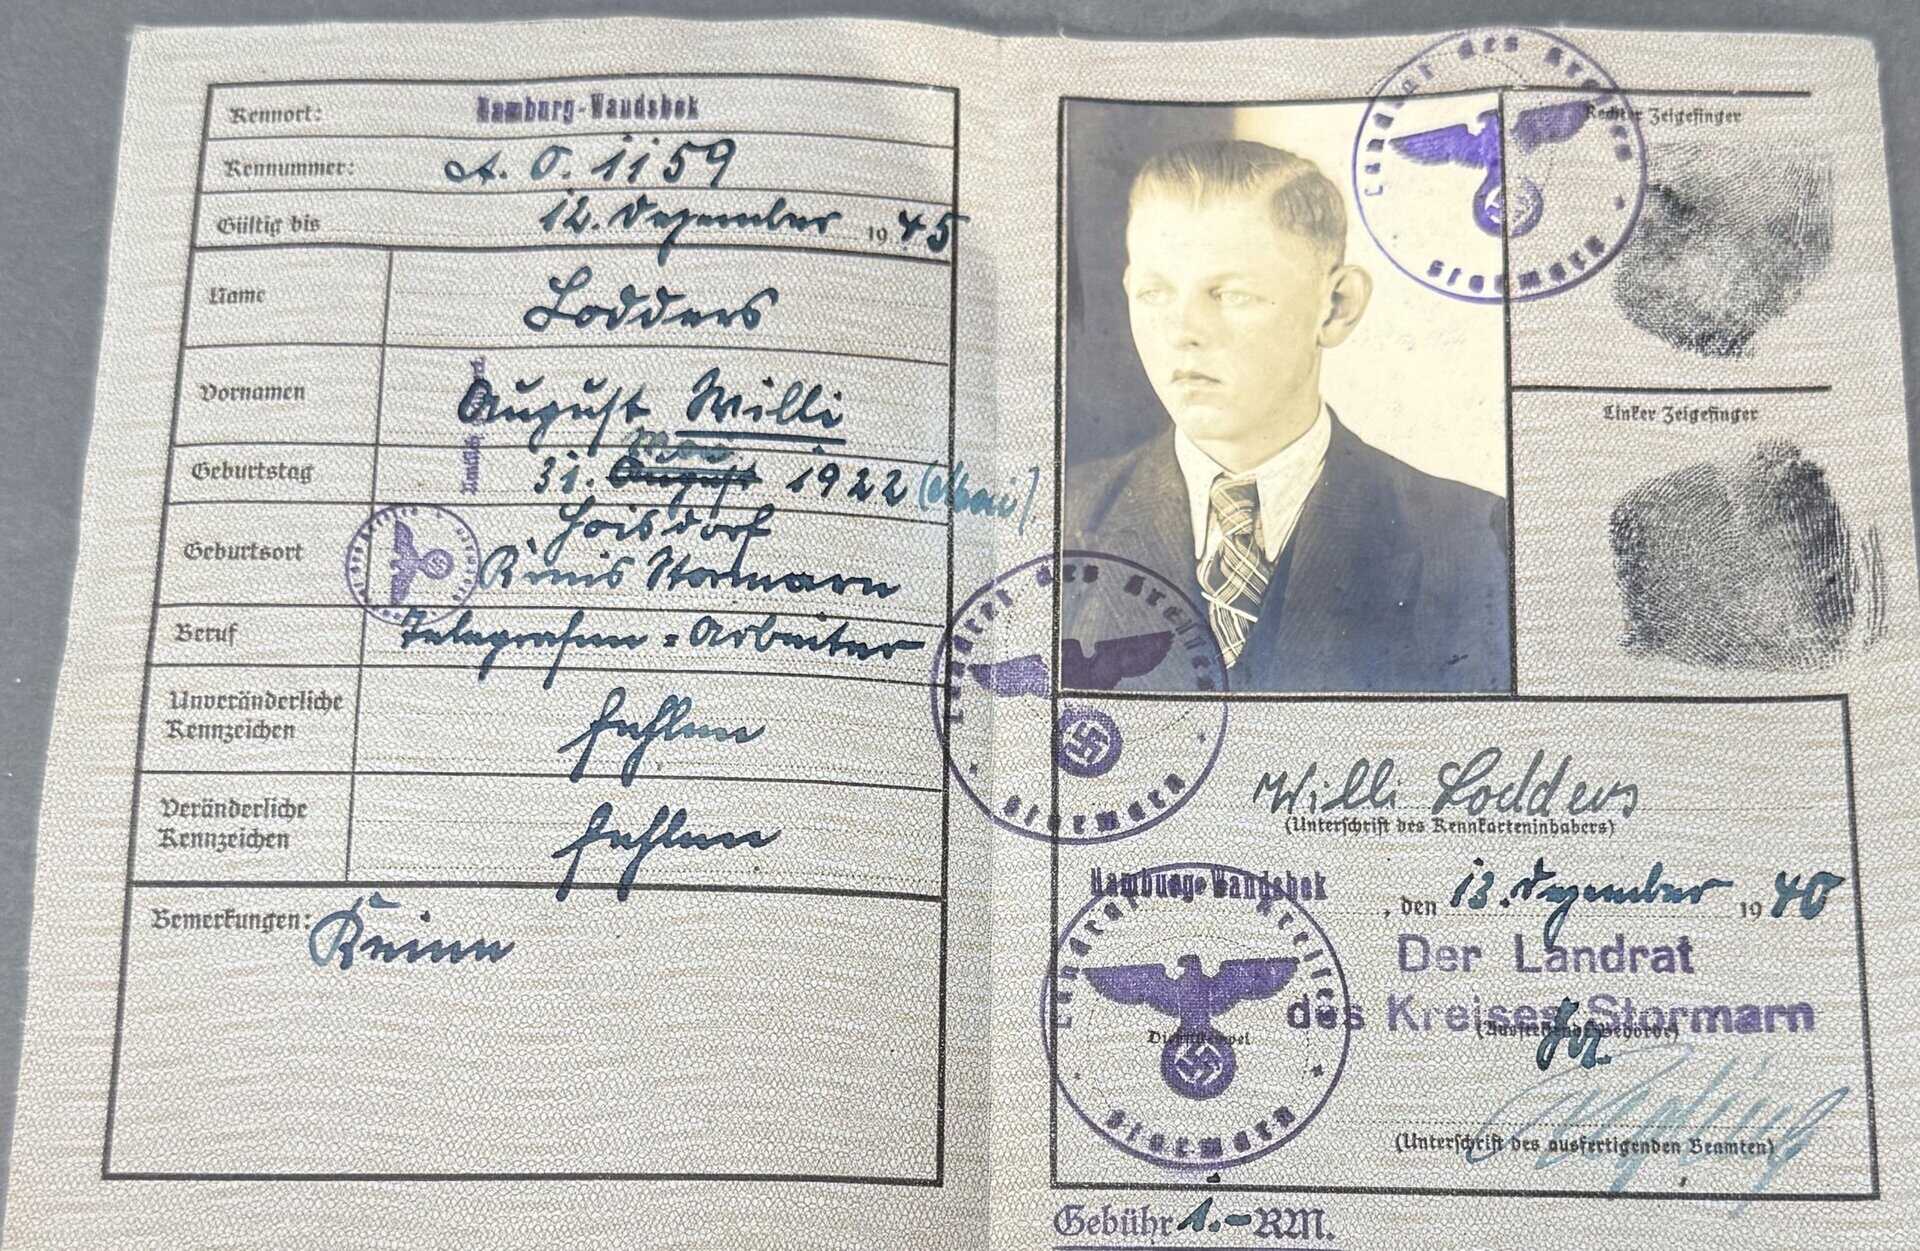 Kennort: Hamburg-Wandsbek
Kennummer: A. O. 1159
Gültig bis 12. Dezember 1945
Name Lodders
Vornamen August Willi
Amtlich
Mai
Geburtstag 31. August 1922 (Mai)
Geburtsort Hoisdorf
Kreis Stormarn
Beruf Telegrafen-Arbeiter
Unveränderliche
Kennzeichen fehlen
Veränderliche
Kennzeichen fehlen
Bemerkungen: Keine
Landrat des Kreises
Stormarn
Rechter Zeigefinger
Linker Zeigefinger
Landrat des Kreises
Stormarn
Willi Lodders
(Unterschrift des Kennkarteninhabers)
Hamburg-Wandsbek, den 13. Dezember 1940
Der Landrat
des Kreises Stormarn
(Ausstellende Behörde)
Landrat des Kreises
Dienststempel
Stormarn
(Unterschrift des ausfertigenden Beamten)
Gebühr 1.- RM.